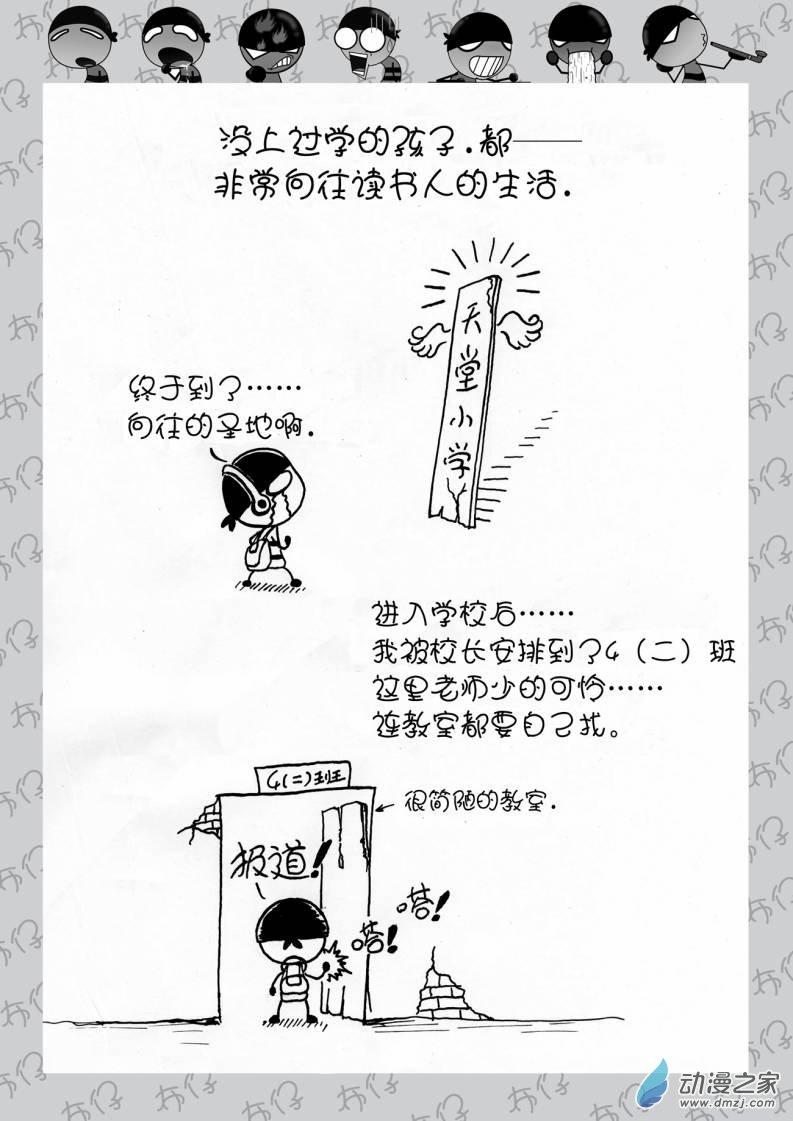 没上过学的孩子.都——
非常向往读书人的生活.
天堂小学
终于到了……
向往的圣地啊.
进入学校后……
我被校长安排到了4（二）班
这里老师少的可怜……
连教室都要自己找。
4(二)班
很简陋的教室.
报道!
嗒!
嗒!
布仔
动漫之家
www.dmzj.com